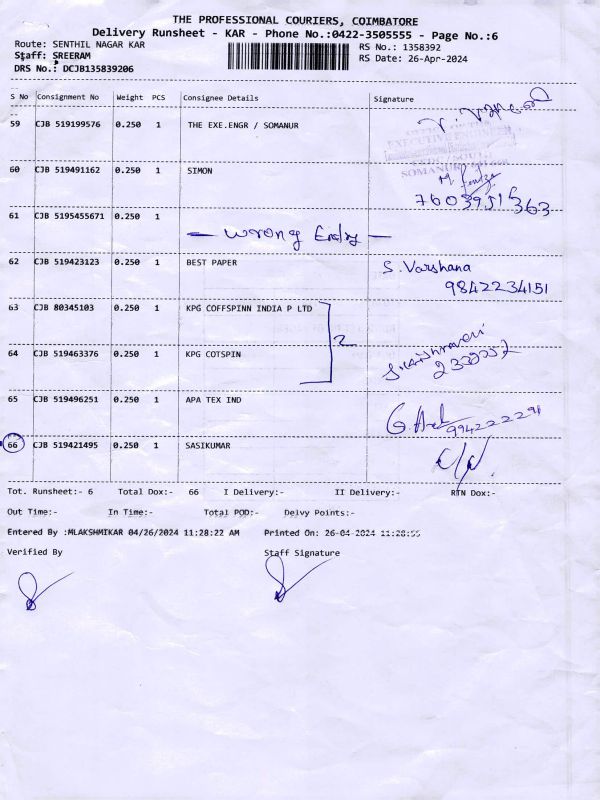 THE PROFESSIONAL COURIERS, COIMBATORE
Delivery Runsheet - KAR - Phone No.:0422-3505555 - Page No.:6
Route: SENTHIL NAGAR KAR RS No.: 1358392
Staff: SREERAM RS Date: 26-Apr-2024
DRS No.: DCJB135839206
S No Consignment No Weight PCS Consignee Details Signature
59 CJB 519199576 0.250 1 THE EXE.ENGR / SOMANUR
60 CJB 519491162 0.250 1 SIMON
61 CJB 5195455671 0.250 1
— Wrong Entry —
62 CJB 519423123 0.250 1 BEST PAPER S. Varshana
9842234151
63 CJB 80345103 0.250 1 KPG COFFSPINN INDIA P LTD
2
64 CJB 519463376 0.250 1 KPG COTSPIN
65 CJB 519496251 0.250 1 APA TEX IND
66 CJB 519421495 0.250 1 SASIKUMAR
Tot. Runsheet:- 6 Total Dox:- 66 I Delivery:- II Delivery:- RTN Dox:-
Out Time:- In Time:- Total POD:- Delvy Points:-
Entered By :MLAKSHMIKAR 04/26/2024 11:28:22 AM Printed On: 26-04-2024 11:28:55
Verified By Staff Signature